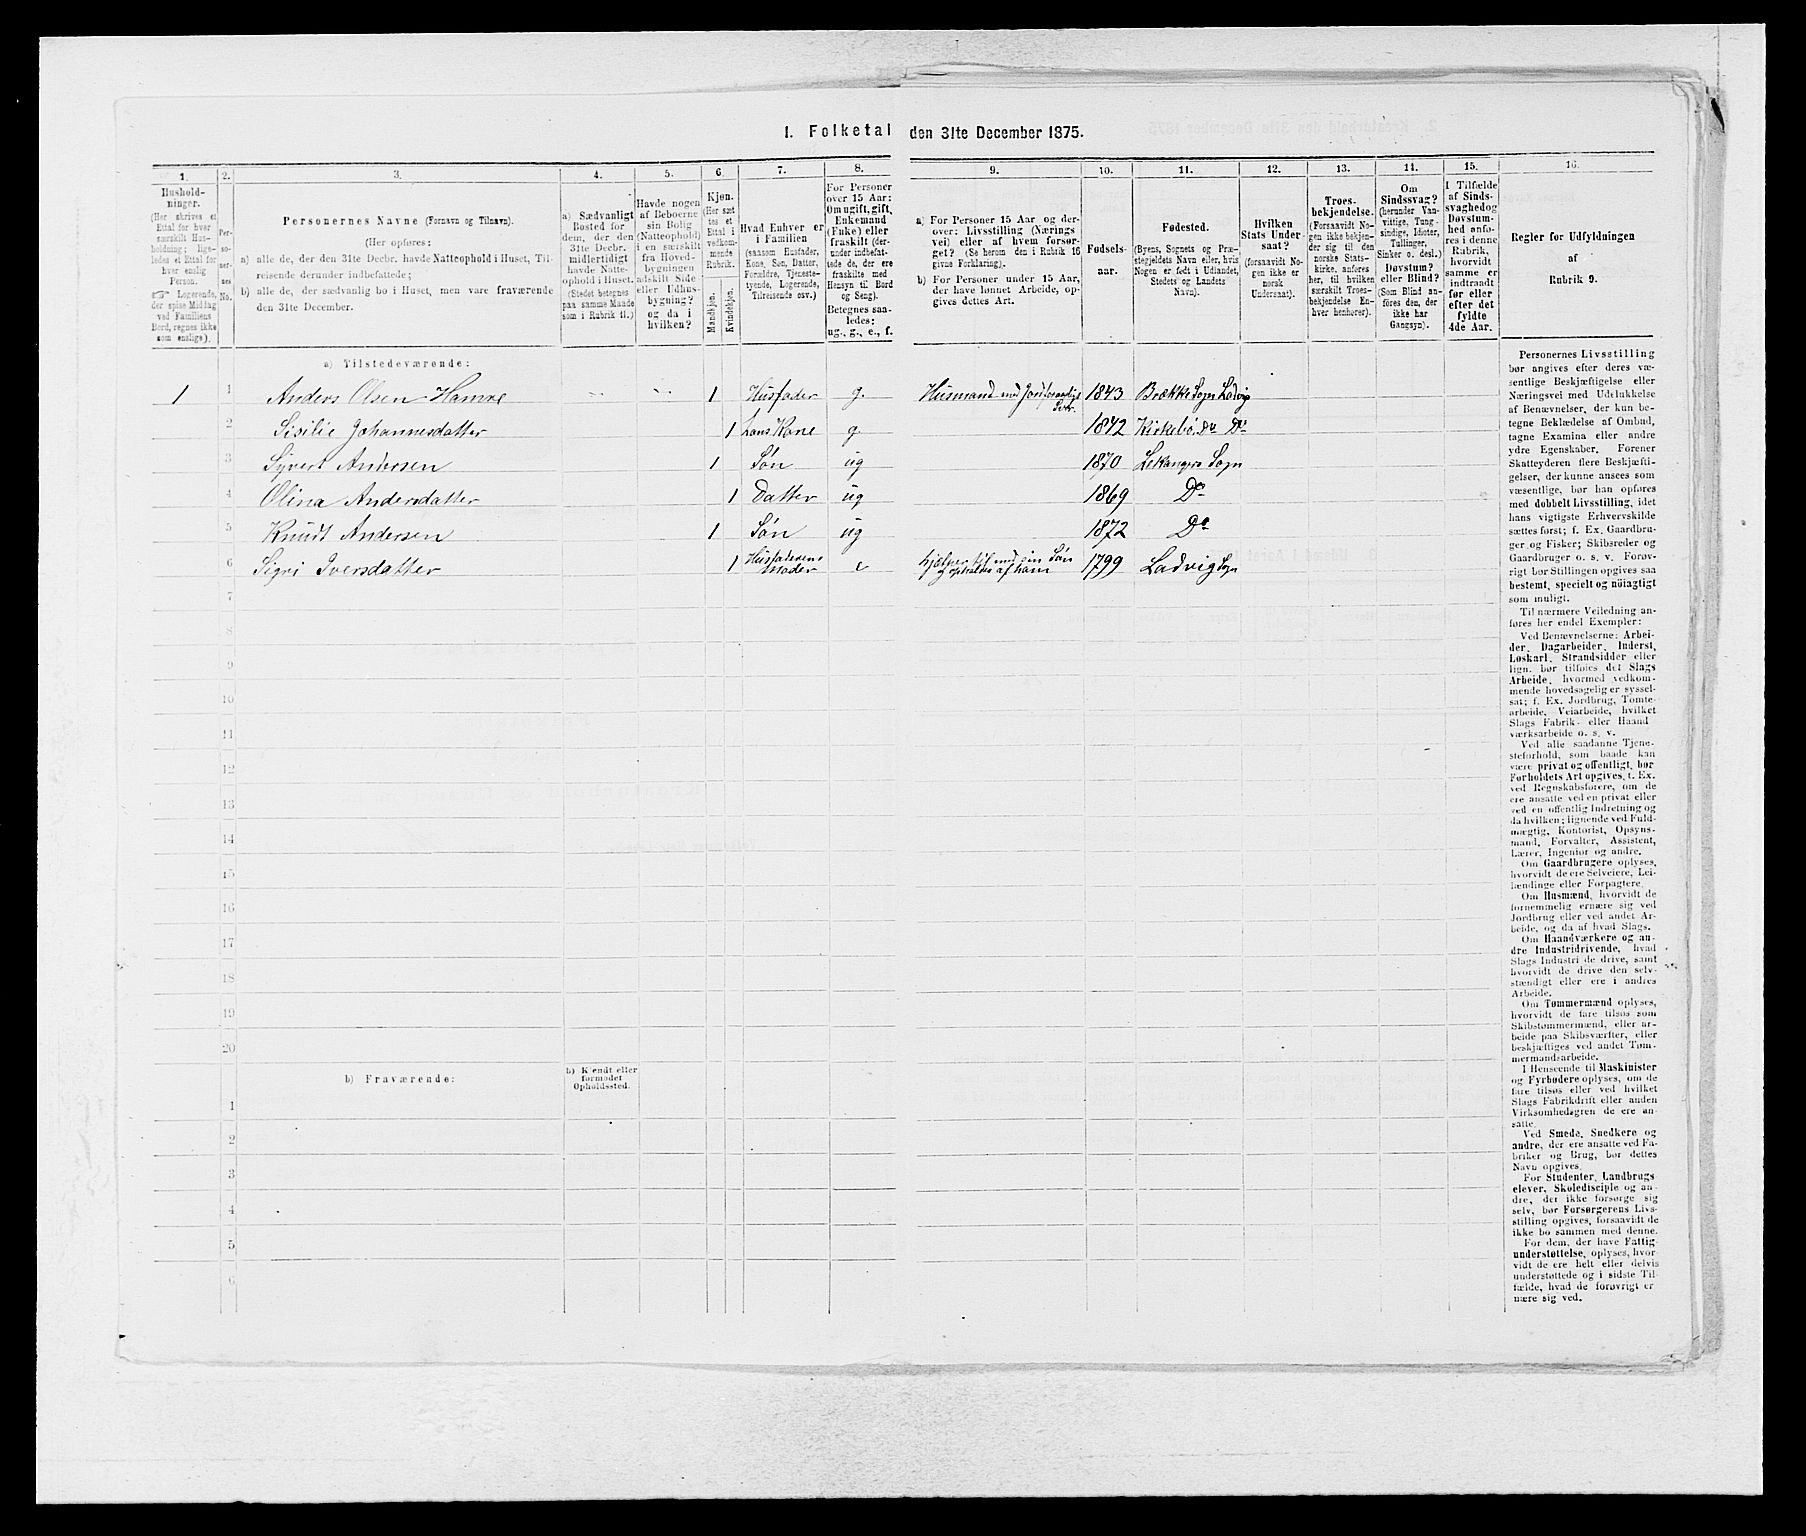 1. Folketal den 31te December 1875.
1. 2. 3. 4. 5. 6. 7. 8. 9. 10. 11. 12. 13. 14. 15. 16.
Hushold-
ninger.
(Her skrives et
Ettal for hver
særskilt Hus-
holdning; lige-
ledes et Ettal for
hver enslig
Person.
☞ Logerende,
der spise Middag
ved Familiens
Bord, regnes ikke
som enslige).
Per-
so-
ner-
nes
No.
Personernes Navne (Fornavn og Tilnavn).
(Her opføres:
a) alle de, der den 31te Decbr. havde Natteophold i Huset, Til-
reisende derunder indbefattede;
b) alle de, der sædvanlig bo i Huset, men vare fraværende
den 31te December.
a) Sædvanligt
Bosted for
dem, der den
31te Decbr.
midlertidigt
havde Natte-
ophold i Huset.
(Stedet betegnes
paa samme Maade
som i Rubrik 11.)
Havde nogen
af Beboerne
sin Bolig
(Natteophold)
i en særskilt
fra Hoved-
bygningen
adskilt Side
eller Udhus-
bygning?
og da i
hvilken?
Kjøn.
(Her sæt-
tes et
Ettal i
vedkom-
mende
Rubrik.
Mandkjøn.
Kvindekjøn.
Hvad Enhver er
i Familien
(saasom Husfader,
Kone, Søn, Datter,
Forældre, Tjeneste-
tyende, Logerende,
Tilreisende osv.)
For Personer
over 15 Aar:
Om ugift, gift,
Enkemand
(Enke) eller
fraskilt (der-
under indbefat-
tede de, der ere
fraskilte med
Hensyn til Bord
og Seng).
Betegnes saa-
ledes:
ug., g., e., f.
a) For Personer 15 Aar og der-
over: Livsstilling (Nærings
vei) eller af hvem forsør-
get? (Se herom den i Rubrik 16
givne Forklaring).
b) For Personer under 15 Aar,
der have lønnet Arbeide, op-
gives dettes Art.
Fødsels-
aar.
Fødested.
(Byens, Sognets og Præ-
stegjeldets Navn eller, hvis
Nogen er født i Udlandet,
Stedets og Landets
Navn).
Hvilken
Stats Under-
saat?
(forsaavidt No-
gen ikke er
norsk
Undersaat).
Troes-
bekjendelse.
(Forsaavidt No-
gen ikke bekjen-
der sig til den
norske Stats-
kirke, anføres
her, til hvilken
særskilt Troes-
bekjendelse En-
hver henhører).
Om
Sindssvag?
(herunder Van-
vittige, Tung-
sindige, Idioter,
Tullinger,
Sinker o. desl.)
Døvstum?
eller Blind?
(Som Blind an-
føres den, der
ikke har
Gangsyn).
I Tilfælde
af Sinds-
svaghed og
Døvstum-
hed anfø-
res i denne
Rubrik,
hvorvidt
samme er
indtraadt
før eller
efter det
fyldte
4de Aar.
Regler for Udfyldningen
af
Rubrik 9.
a) Tilstedeværende:
1 1 Anders Olsen Hamre 1 Husfader g. Husmand med Jord 1843 Brække Sogn Ladvig
2 Sisilie Johannesdatter 1 hans Kone g. 1842 Kirkebø Do Do
3 Syvert Andersen 1 Søn ug 1870 Lekangers Sogn
4 Olina Andersdatter 1 Datter ug 1869 Do
5 Knudt Andersen 1 Søn ug 1872 Do
6 Sigri Iversdatter 1 Husfaderens Moder e hjelper til med sin Søn og opholdes af ham 1799 Ladvig Sogn
7
8
9
10
11
12
13
14
15
16
17
18
19
20
b) Fraværende:
b) Kjendt eller
formodet
Opholdssted.
1
2
3
4
5
6
Personernes Livsstilling
bør angives efter deres væ-
sentlige Beskjæftigelse eller
Næringsvei med Udelukkelse
af Benævnelser, der kun be-
tegne Beklædelse af Ombud,
tagne Examina eller andre
ydre Egenskaber. Forener
Skatteyderen flere Beskjæfti-
gelser, der kunne ansees som
væsentlige, bør han opføres
med dobbelt Livsstilling, idet
hans vigtigste Erhvervskilde
sættes først; f. Ex. Gaardbru-
ger og Fisker; Skibsreder og
Gaardbruger o. s. v. Forøv-
rigt bør Stillingen opgives saa
bestemt, specielt og nöiagtigt
som muligt.
Til nærmere Veiledning an-
føres her endel Exempler:
Ved Benævnelserne: Arbei-
der, Dagarbeider, Inderst,
Løskarl, Strandsidder eller
lign. bør tilføies det Slags
Arbeide, hvormed vedkom-
mende hovedsagelig er syssel-
sat; f. Ex. Jordbrug, Tomte-
arbeide, Veiarbeide, hvilket
Slags Fabrik- eller Haand
værksarbeide o. s. v.
Ved alle saadanne Tjene-
steforhold, som baade kan
være privat og offentligt, bør
Forholdets Art opgives, t. Ex.
ved Regnskabsførere, om de
ere ansatte ved en privat eller
ved en offentlig Indretning og
da hvilken; lignende ved Fuld-
mægtig, Kontorist, Opsyns-
mand, Forvalter, Assistent,
Lærer, Ingeniør og andre.
Om Gaardbrugere oplyses,
hvorvidt de ere Selveiere, Lei-
lændinge eller Forpagtere.
Om Husmænd, hvorvidt de
fornemmelig ernære sig ved
Jordbrug eller ved andet Ar-
beide, og da af hvad Slags.
Om Haandværkere og an-
dre Industridrivende, hvad
Slags Industri de drive, samt
hvorvidt de drive den selv-
stændigt eller ere i andres
Arbeide.
Om Tømmermænd oplyses,
hvorvidt de fare tilsøs som
Skibstømmermænd, eller ar-
beide paa Skibsværfter, eller
beskjæftiges ved andet Tøm-
mermandsarbeide.
I Henseende til Maskinister
og Fyrbødere oplyses, om de
fare tilsøs eller ved hvilket
Slags Fabrikdrift eller anden
Virksomhedsgren de ere an-
satte.
Ved Smede, Snedkere og
andre, der ere ansatte ved Fa-
briker og Brug, bør dettes
Navn opgives.
For Studenter, Landbrugs-
elever, Skoledisciple og an-
dre, der ikke forsørge sig
selv, bør Forsørgerens Livs-
stilling opgives, forsaavidt de
ikke bo sammen med denne.
For dem, der have Fattig-
understøttelse, oplyses, hvor-
vidt de ere helt eller delvis
understøttede og i sidste Til-
fælde, hvad de forøvrigt er-
nære sig ved.